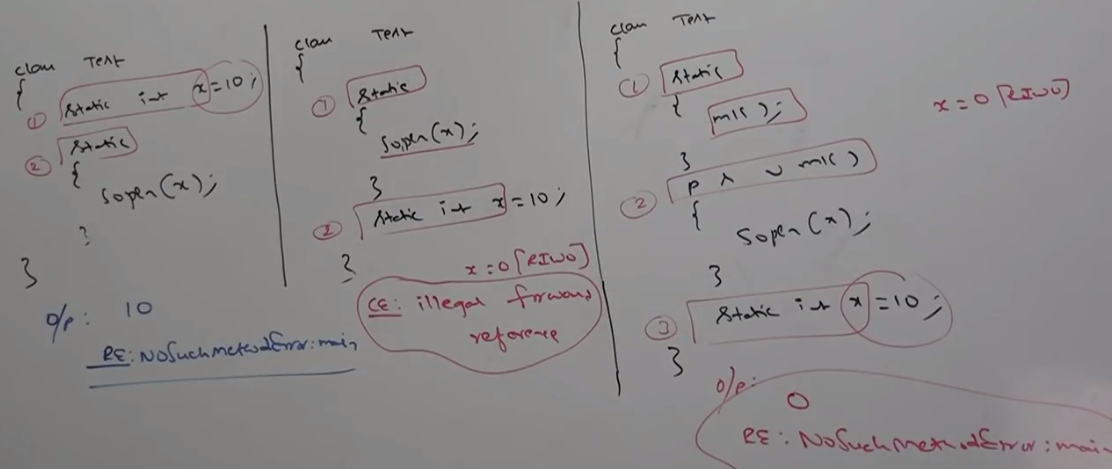 class Test
{
① static int x=10;
② static
{
Sopln(x);
}
}
o/p: 10
RE: NoSuchMethodError: main
class Test
{
① static
{
Sopln(x);
}
② static int x=10;
}
x=0 [RIWO]
CE: illegal forward
reference
class Test
{
① static
{
m1();
}
② p s v m1()
{
Sopln(x);
}
③ static int x=10;
}
x=0 [RIWO]
o/p:
0
RE: NoSuchMethodError: main